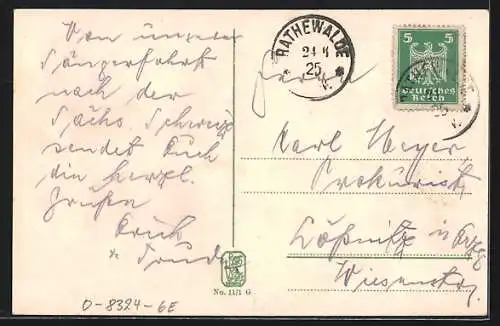 Von unserer
Sängerfahrt
nach der
Sächs. Schweiz
sendet Euch
die herzl.
Grüßen
Erich
u. Trude
RATHEWALDE
25
5 5
Deutsches
Reich
Familie
Karl Meyer
Prokurist
Lößnitz i. Erzg
No. 11/1 G
O-8324-6E